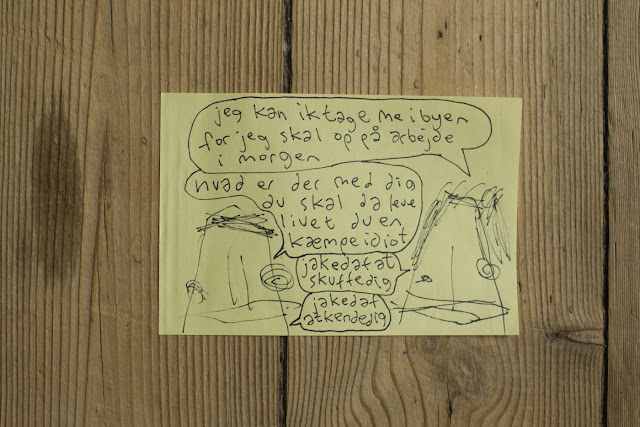 jeg kan ik tage me i byen
for jeg skal op på arbejde
i morgen
hvad er der med dig
du skal da leve
livet du en
kæmpe idiot
jakedafat
skuffedig
jakedaf
atkendedig